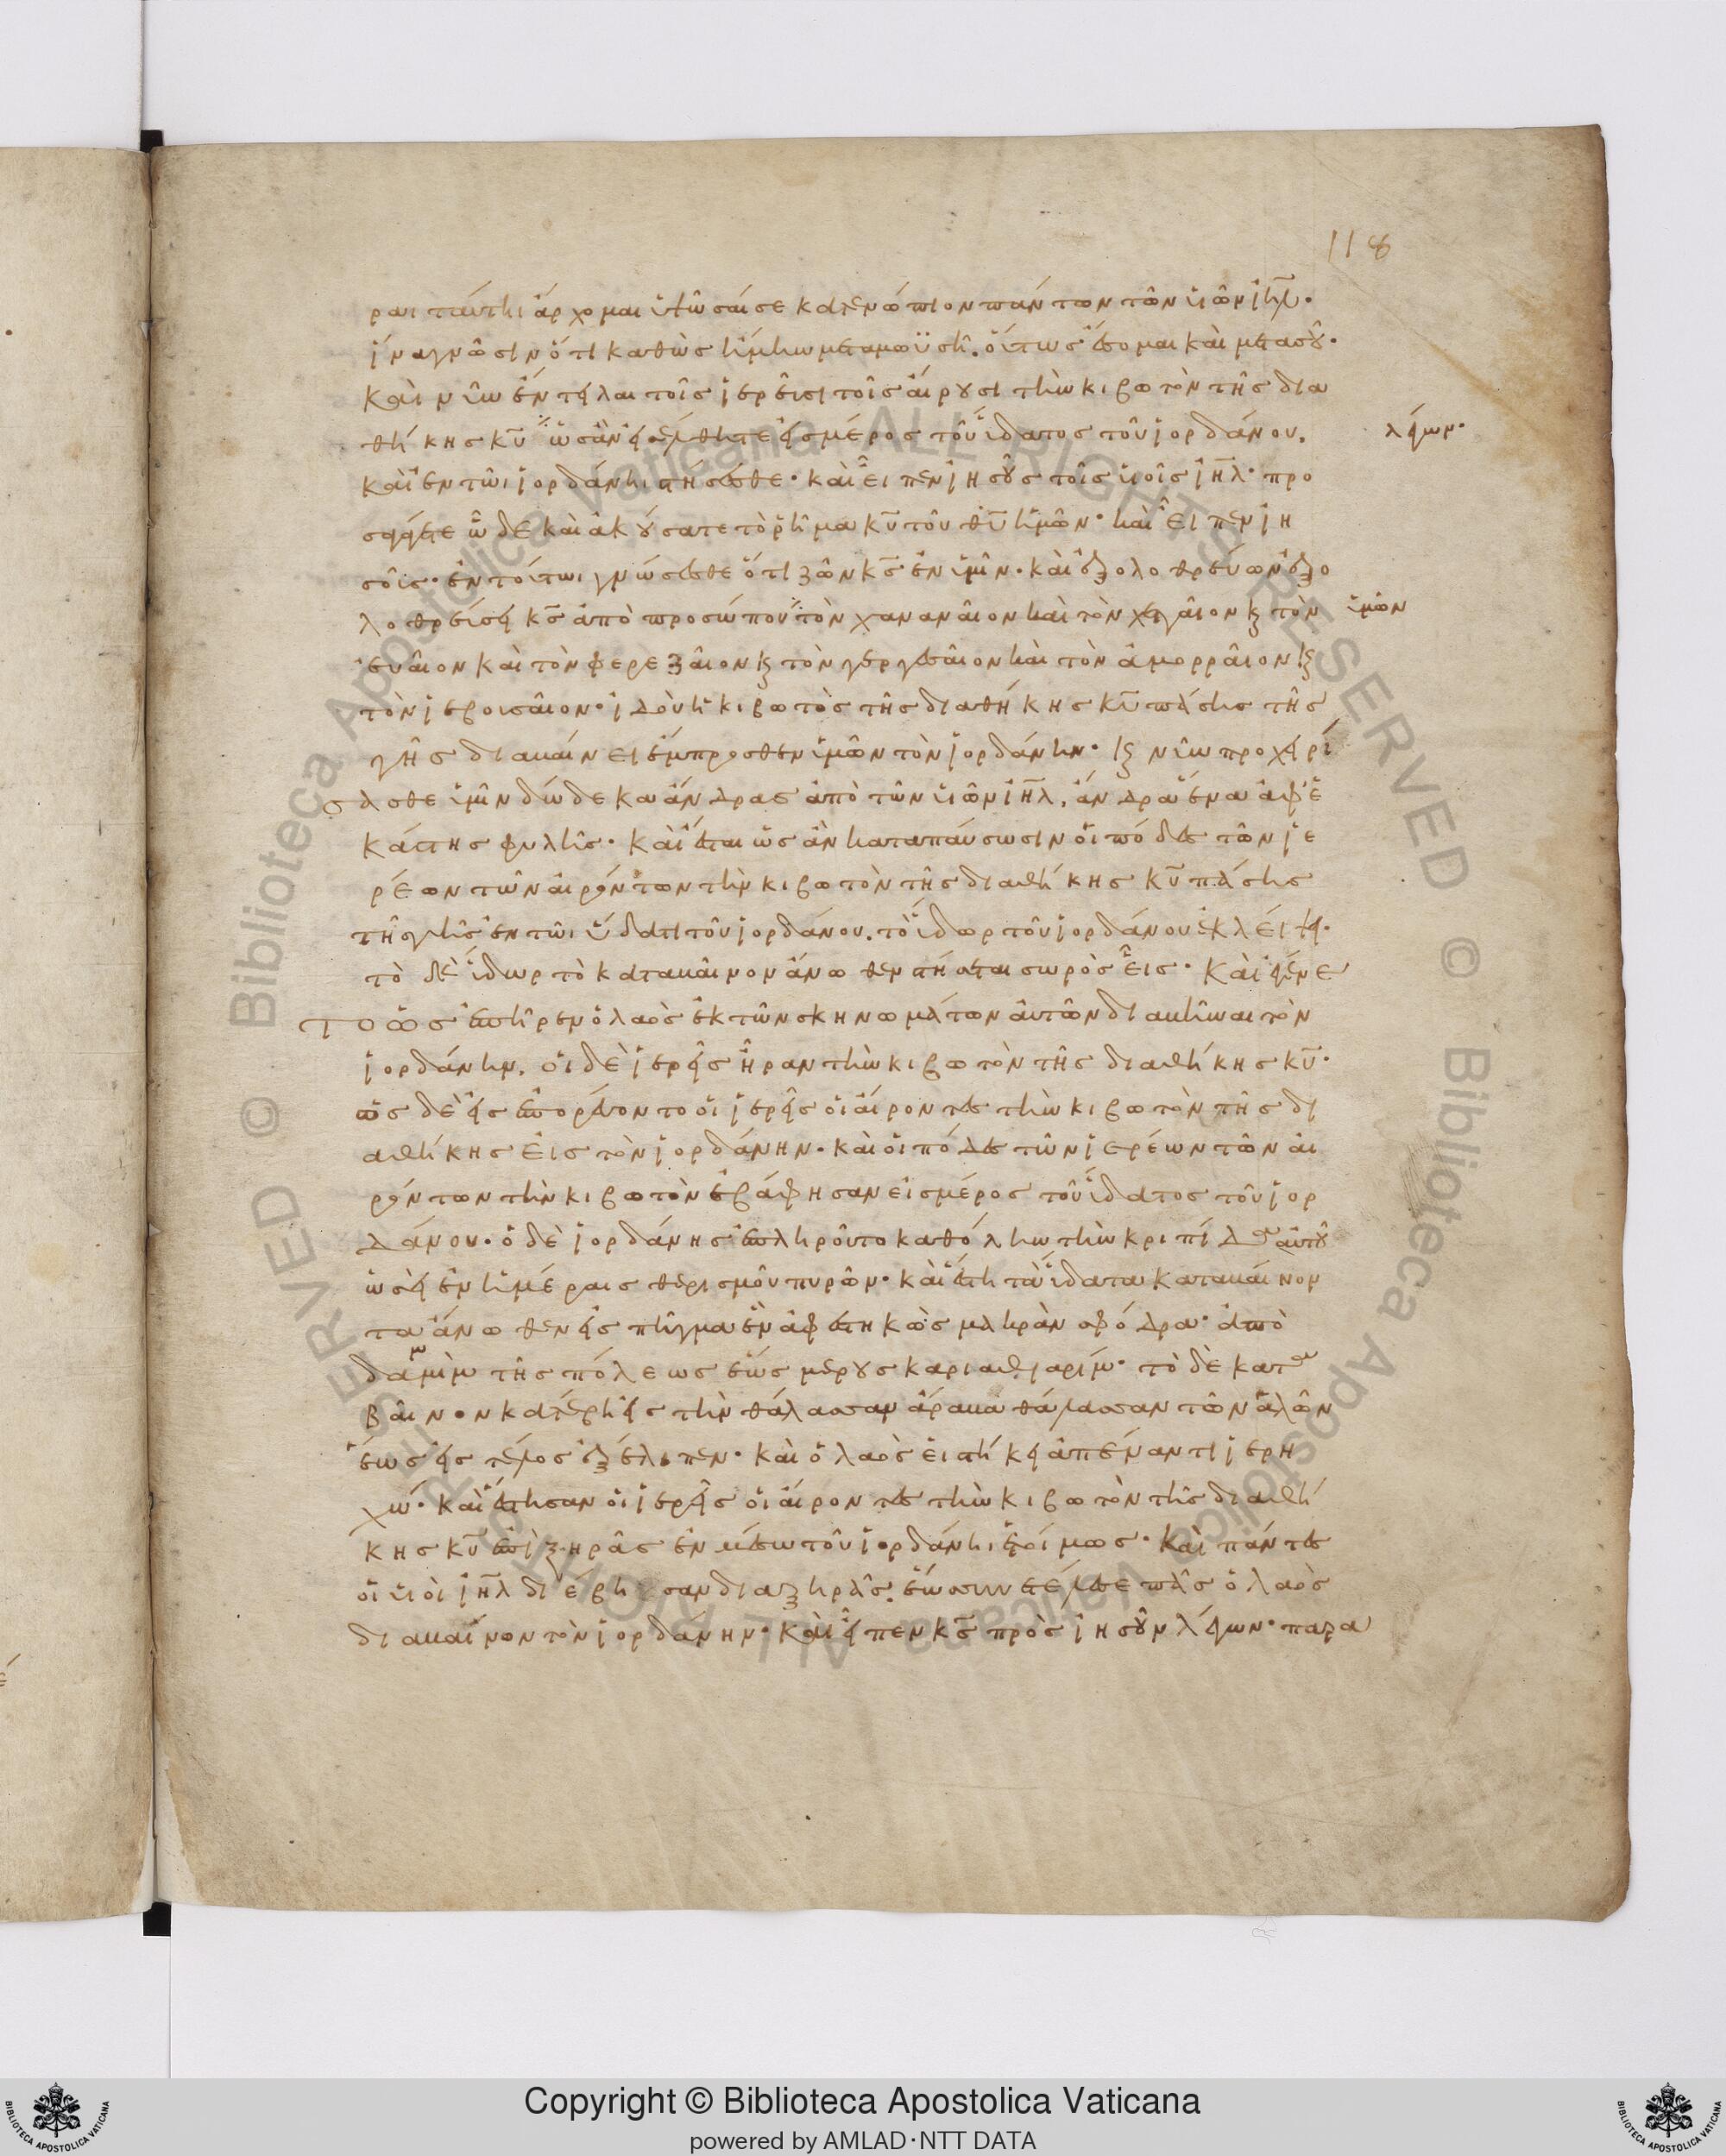 118
ραι ταύτηι ἄρχομαι ὑψῶσαί σε κατενώπιον πάντων τῶν υἱῶν ιηλ·
ἵνα γνῶσιν ὅτι καθὼς ἤμην μετα μωϋσῆ. οὕτως ἔσομαι καὶ μετα σοῦ·
Καὶ νῦν ἔντειλαι τοῖς ἱερεῦσι τοῖς αἴρουσι τὴν κιβωτὸν τῆς δια
θήκης κυ ὡς ἂν εἰσέλθητε εἰς μέρος τοῦ ὕδατος τοῦ ἰορδάνου.
λέγων·
καὶ ἐν τῶι ἰορδάνηι στήσεσθε· καὶ εἶπεν ἰησοῦς τοῖς υἱοῖς ιηλ· προ
σαγάγετε ὧδε καὶ ἀκούσατε τὸ ῥῆμα κυ τοῦ θυ ἡμῶν· καὶ εἶπεν ἰη
σοῦς· ἐν τούτωι γνώσεσθε ὅτι ζῶν κς ἐν ὑμῖν· καὶ ἐξολοθρεύων ἐξο
λοθρεύσει κς ἀπὸ προσώπου τὸν χαναναῖον καὶ τὸν χετταῖον κ τὸν
ὑμῶν
εὐαῖον καὶ τὸν φερεζαῖον κ τὸν γεργεσαῖον καὶ τὸν ἀμορραῖον κ
τὸν ἰεβουσαῖον· ἰδοὺ ἡ κιβωτὸς τῆς διαθήκης κυ πάσης τῆς
γῆς διαβαίνει ἔμπροσθεν ὑμῶν τὸν ἰορδάνην· κ νῦν προχειρί
σασθε ὑμῖν δώδεκα ἄνδρας ἀπὸ τῶν υἱῶν ιηλ, ἄνδρα ἕνα ἀφ' ἑ
κάστης φυλῆς· Καὶ ἔσται ὡς ἂν καταπαύσωσιν οἱ πόδες τῶν ἱε
ρέων τῶν αἰρόντων τὴν κιβωτὸν τῆς διαθήκης κυ πάσης
τῆς γῆς ἐν τῶι ὕδατι τοῦ ἰορδάνου. τὸ ὕδωρ τοῦ ἰορδάνου ἐκλείψει·
τὸ δὲ ὕδωρ τὸ καταβαῖνον ἄνωθεν στήσεται σωρὸς εἷς· Καὶ ἐγένε
το ὡς ἐπῆρεν ὁ λαὸς ἐκ τῶν σκηνωμάτων αὐτῶν διαβῆναι τὸν
ἰορδάνην. οἱ δὲ ἱερεῖς ἦραν τὴν κιβωτὸν τῆς διαθήκης κυ·
ὡς δὲ εἰσεπορεύοντο οἱ ἱερεῖς οἱ αἴροντες τὴν κιβωτὸν τῆς δι
αθήκης εἰς τὸν ἰορδάνην· καὶ οἱ πόδες τῶν ἱερέων τῶν αἰ
ρόντων τὴν κιβωτὸν ἐβάφησαν εἰς μέρος τοῦ ὕδατος τοῦ ἰορ
δάνου· ὁ δὲ ἰορδάνης ἐπληροῦτο καθόλην τὴν κρηπίδα αὐτοῦ
ὡσεὶ ἐν ἡμέραις θερισμοῦ πυρῶν· καὶ ἔστη τὰ ὕδατα καταβαίνον
τα ἄνωθεν εἰς πῆγμα ἓν ἀφεστηκὼς μακρὰν σφόδρα· ἀπὸ
δαμὶν τῆς πόλεως ἕως μέρους καριαθιαρίμ· τὸ δὲ κατα
βαῖνον κατέβη εἰς τὴν θάλασσαν ἄραβα θάλασσαν τῶν ἁλῶν
ἕως εἰς τέλος ἐξέλιπεν· καὶ ὁ λαὸς εἱστήκει ἀπέναντι ἰερη
χώ· καὶ ἔστησαν οἱ ἱερεῖς οἱ αἴροντες τὴν κιβωτὸν τῆς διαθή
κης κυ ἐπὶ ξηρᾶς ἐν μέσω τοῦ ἰορδάνηι ἑτοίμως· Καὶ πάντες
οἱ υἱοὶ ιηλ διέβησαν διὰ ξηρᾶς. ἕως συνετέλεσε πᾶς ὁ λαὸς
διαβαίνων τὸν ἰορδάνην· Καὶ εἶπεν κς πρὸς ἰησοῦν λέγων· παρα
Copyright © Biblioteca Apostolica Vaticana
powered by AMLAD·NTT DATA